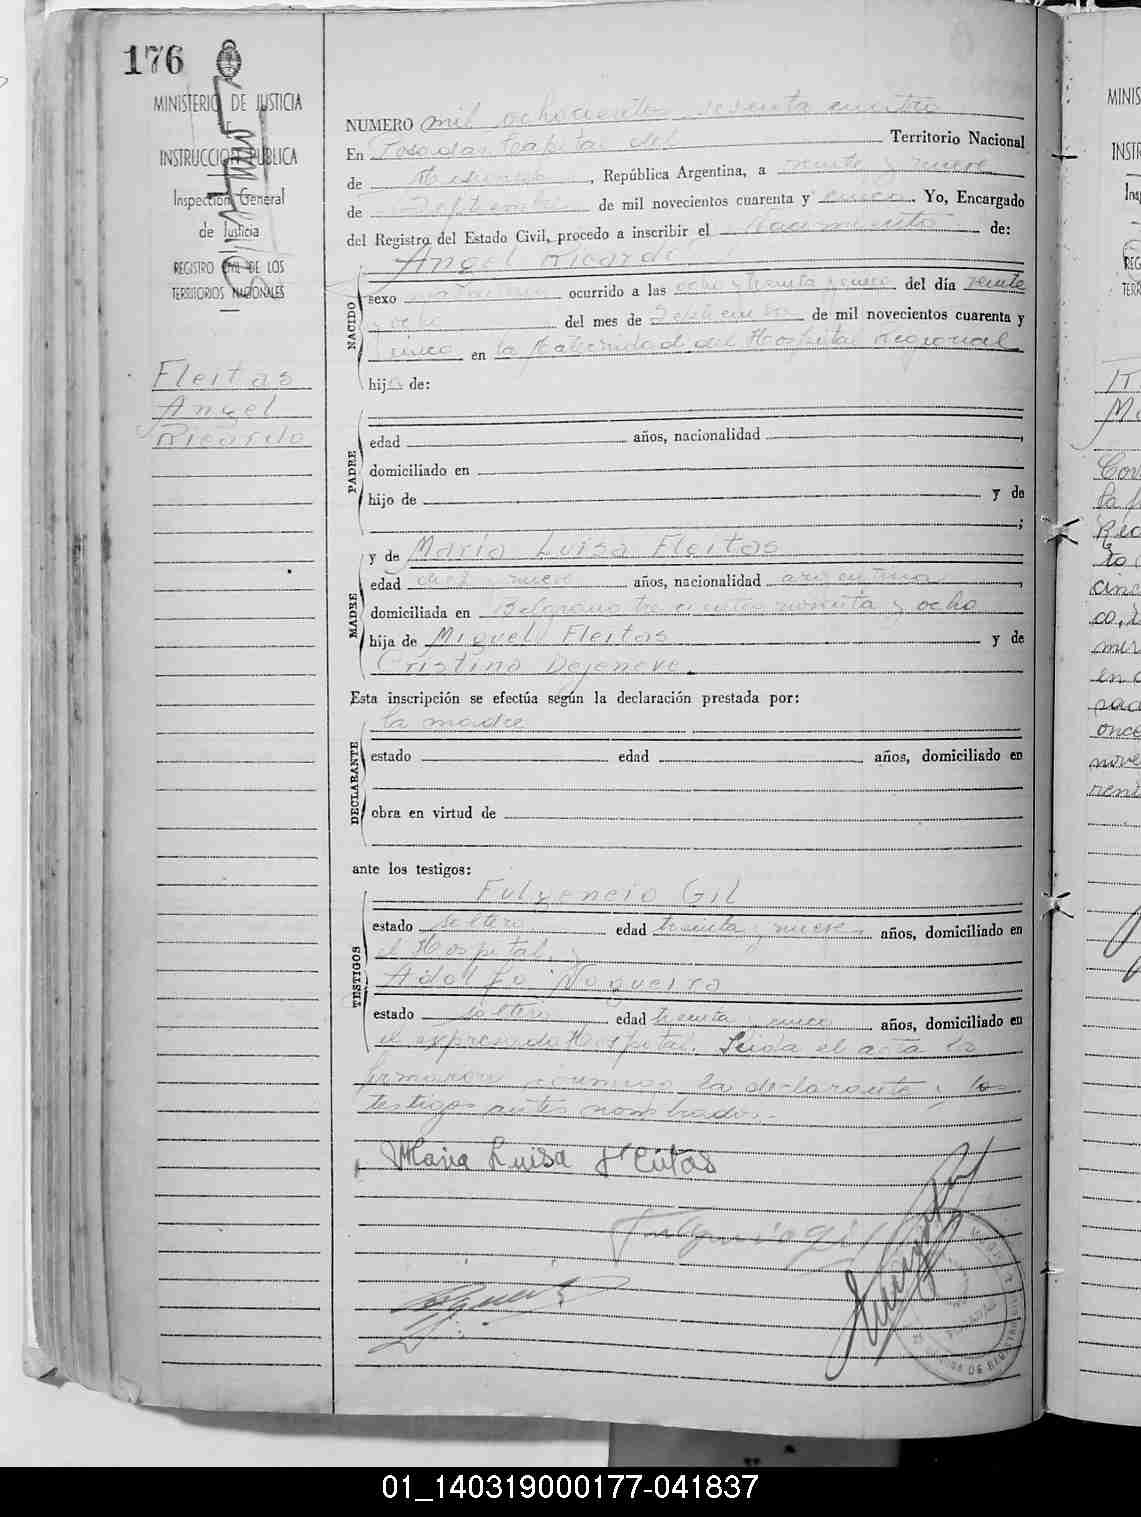 176
MINISTERIO DE JUSTICIA
E
INSTRUCCION PUBLICA
Inspección General
de Justicia
REGISTRO CIVIL DE LOS
TERRITORIOS NACIONALES
Fleitas
Angel
Ricardo
NUMERO mil ochocientos sesenta cuatro
En Posadas Capital del Territorio Nacional
de Misiones, República Argentina, a veinte y nueve
de Septiembre de mil novecientos cuarenta y cinco. Yo, Encargado
del Registro del Estado Civil, procedo a inscribir el Nacimiento de:
Angel Ricardo
NACIDO
sexo masculino ocurrido a las ocho y treinta y cinco del día veinte
y ocho del mes de Septiembre de mil novecientos cuarenta y
cinco en la Maternidad del Hospital Regional
hijo de:
PADRE
edad años, nacionalidad ,
domiciliado en
hijo de y de
;
MADRE
y de María Luisa Fleitas
edad diez y nueve años, nacionalidad argentina,
domiciliada en Belgrano trescientos noventa y ocho
hija de Miguel Fleitas y de
Cristina Dejeneve.
Esta inscripción se efectúa según la declaración prestada por:
la madre
DECLARANTE
estado edad años, domiciliado en
obra en virtud de
ante los testigos:
TESTIGOS
Fulgencio Gil
estado soltero edad treinta y nueve años, domiciliado en
el Hospital. y
Adolfo Nogueira
estado soltero edad treinta y cinco años, domiciliado en
el expresado Hospital. Leída el acta la
firmaron conmigo la declarante y los
testigos antes nombrados.-
Maria Luisa Fleitas
Fulgencio Gil
MINIS
INSTR
REG
TERR
IT
M
Con
la
Re
to
cinc
co,
mir
en
pad
once
nove
rent
01_140319000177-041837